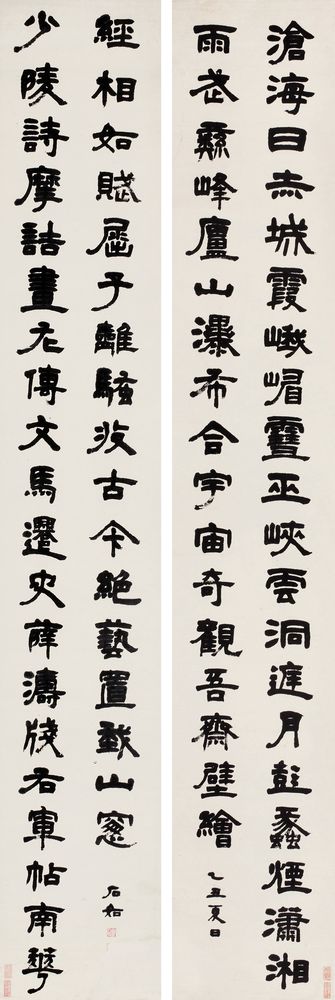 滄海日赤城霞峨嵋雪巫峽雲洞庭月彭蠡煙瀟湘
雨武彝峰廬山瀑布合宇宙奇觀吾齋壁繪
乙丑夏日
少陵詩摩詰畫左傳文馬遷史薛濤牋右軍帖南華
經相如賦屈子離騷收古今絕藝置我山窗
石如